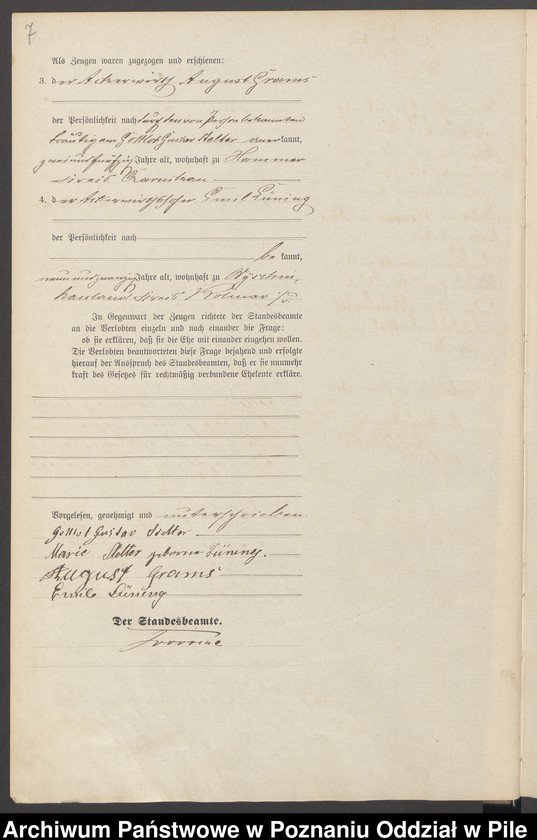 7
Als Zeugen waren zugezogen und erschienen:
3. der Ackerwirth August Grams
der Persönlichkeit nach durch den von Person bekannten
Bräutigam Gottlob Gustav Stelter anerkannt,
zweiundfünfzig Jahre alt, wohnhaft zu Hammer
Kreis Czarnikau
4. der Ackerwirthssohn Emil Lüning
der Persönlichkeit nach
be kannt,
neunundzwanzig Jahre alt, wohnhaft zu
hauland Kreis Kolmar i/P.
In Gegenwart der Zeugen richtete der Standesbeamte
an die Verlobten einzeln und nach einander die Frage:
ob sie erklären, daß sie die Ehe mit einander eingehen wollen.
Die Verlobten beantworteten diese Frage bejahend und erfolgte
hierauf der Ausspruch des Standesbeamten, daß er sie nunmehr
kraft des Gesetzes für rechtmäßig verbundene Eheleute erkläre.
Vorgelesen, genehmigt und unterschrieben
Gustav Stelter
Marie Stelter geborene Lüning.
August Grams
Emil Lüning
Der Standesbeamte.
Archiwum Państwowe w Poznaniu Oddział w Pile